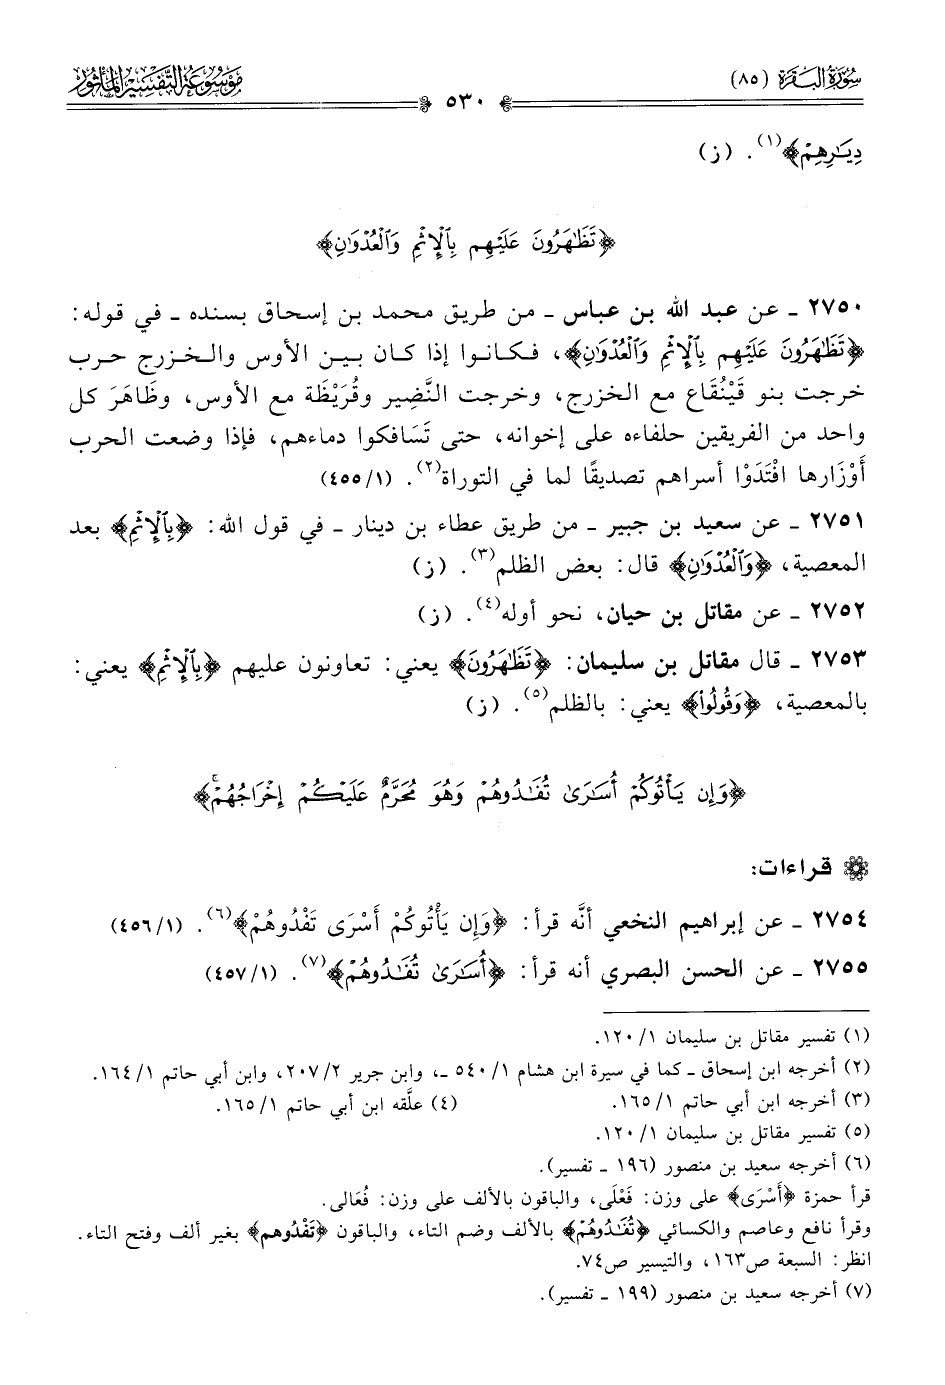 سُورَةُ البَقَرَة (٨٥)
٥٣٠
مَوْسُوعَةُ التَّفْسِيرِ المَأْثُور
دِيَٰرِهِمْ﴾(١). (ز)
﴿تَظَٰهَرُونَ عَلَيْهِم بِٱلْإِثْمِ وَٱلْعُدْوَٰنِ﴾
٢٧٥٠ ـ عن عبد الله بن عباس ـ من طريق محمد بن إسحاق بسنده ـ في قوله:
﴿تَظَٰهَرُونَ عَلَيْهِم بِٱلْإِثْمِ وَٱلْعُدْوَٰنِ﴾، فكانوا إذا كان بين الأوس والخزرج حرب
خرجت بنو قَيْنُقَاع مع الخزرج، وخرجت النَّضِير وقُرَيْظَة مع الأوس، وظَاهَرَ كل
واحد من الفريقين حلفاءه على إخوانه، حتى تَسَافكوا دماءهم، فإذا وضعت الحرب
أَوْزَارها افْتَدَوْا أسراهم تصديقًا لما في التوراة(٢). (١/ ٤٥٥)
٢٧٥١ ـ عن سعيد بن جبير ـ من طريق عطاء بن دينار ـ في قول الله: ﴿بِٱلْإِثْمِ﴾ بعد
المعصية، ﴿وَٱلْعُدْوَٰنِ﴾ قال: بعض الظلم(٣). (ز)
٢٧٥٢ ـ عن مقاتل بن حيان، نحو أوله(٤). (ز)
٢٧٥٣ ـ قال مقاتل بن سليمان: ﴿تَظَٰهَرُونَ﴾ يعني: تعاونون عليهم ﴿بِٱلْإِثْمِ﴾ يعني:
بالمعصية، ﴿وَقُولُوا۟﴾ يعني: بالظلم(٥). (ز)
﴿وَإِن يَأْتُوكُمْ أُسَٰرَىٰ تُفَٰدُوهُمْ وَهُوَ مُحَرَّمٌ عَلَيْكُمْ إِخْرَاجُهُمْ ۚ﴾
قراءات:
٢٧٥٤ ـ عن إبراهيم النخعي أنَّه قرأ: ﴿وَإِن يَأْتُوكُمْ أَسْرَى تَفْدُوهُمْ﴾(٦). (١/ ٤٥٦)
٢٧٥٥ ـ عن الحسن البصري أنه قرأ: ﴿أُسَٰرَىٰ تُفَٰدُوهُمْ﴾(٧). (١/ ٤٥٧)
(١) تفسير مقاتل بن سليمان ١/ ١٢٠.
(٢) أخرجه ابن إسحاق ـ كما في سيرة ابن هشام ١/ ٥٤٠ ـ، وابن جرير ٢/ ٢٠٧، وابن أبي حاتم ١/ ١٦٤.
(٣) أخرجه ابن أبي حاتم ١/ ١٦٥. (٤) علَّقه ابن أبي حاتم ١/ ١٦٥.
(٥) تفسير مقاتل بن سليمان ١/ ١٢٠.
(٦) أخرجه سعيد بن منصور (١٩٦ ـ تفسير).
قرأ حمزة ﴿أَسْرَى﴾ على وزن: فَعْلَى، والباقون بالألف على وزن: فُعَالى.
وقرأ نافع وعاصم والكسائي ﴿تُفَٰدُوهُمْ﴾ بالألف وضم التاء، والباقون ﴿تَفْدُوهم﴾ بغير ألف وفتح التاء.
انظر: السبعة ص١٦٣، والتيسير ص٧٤.
(٧) أخرجه سعيد بن منصور (١٩٩ ـ تفسير).